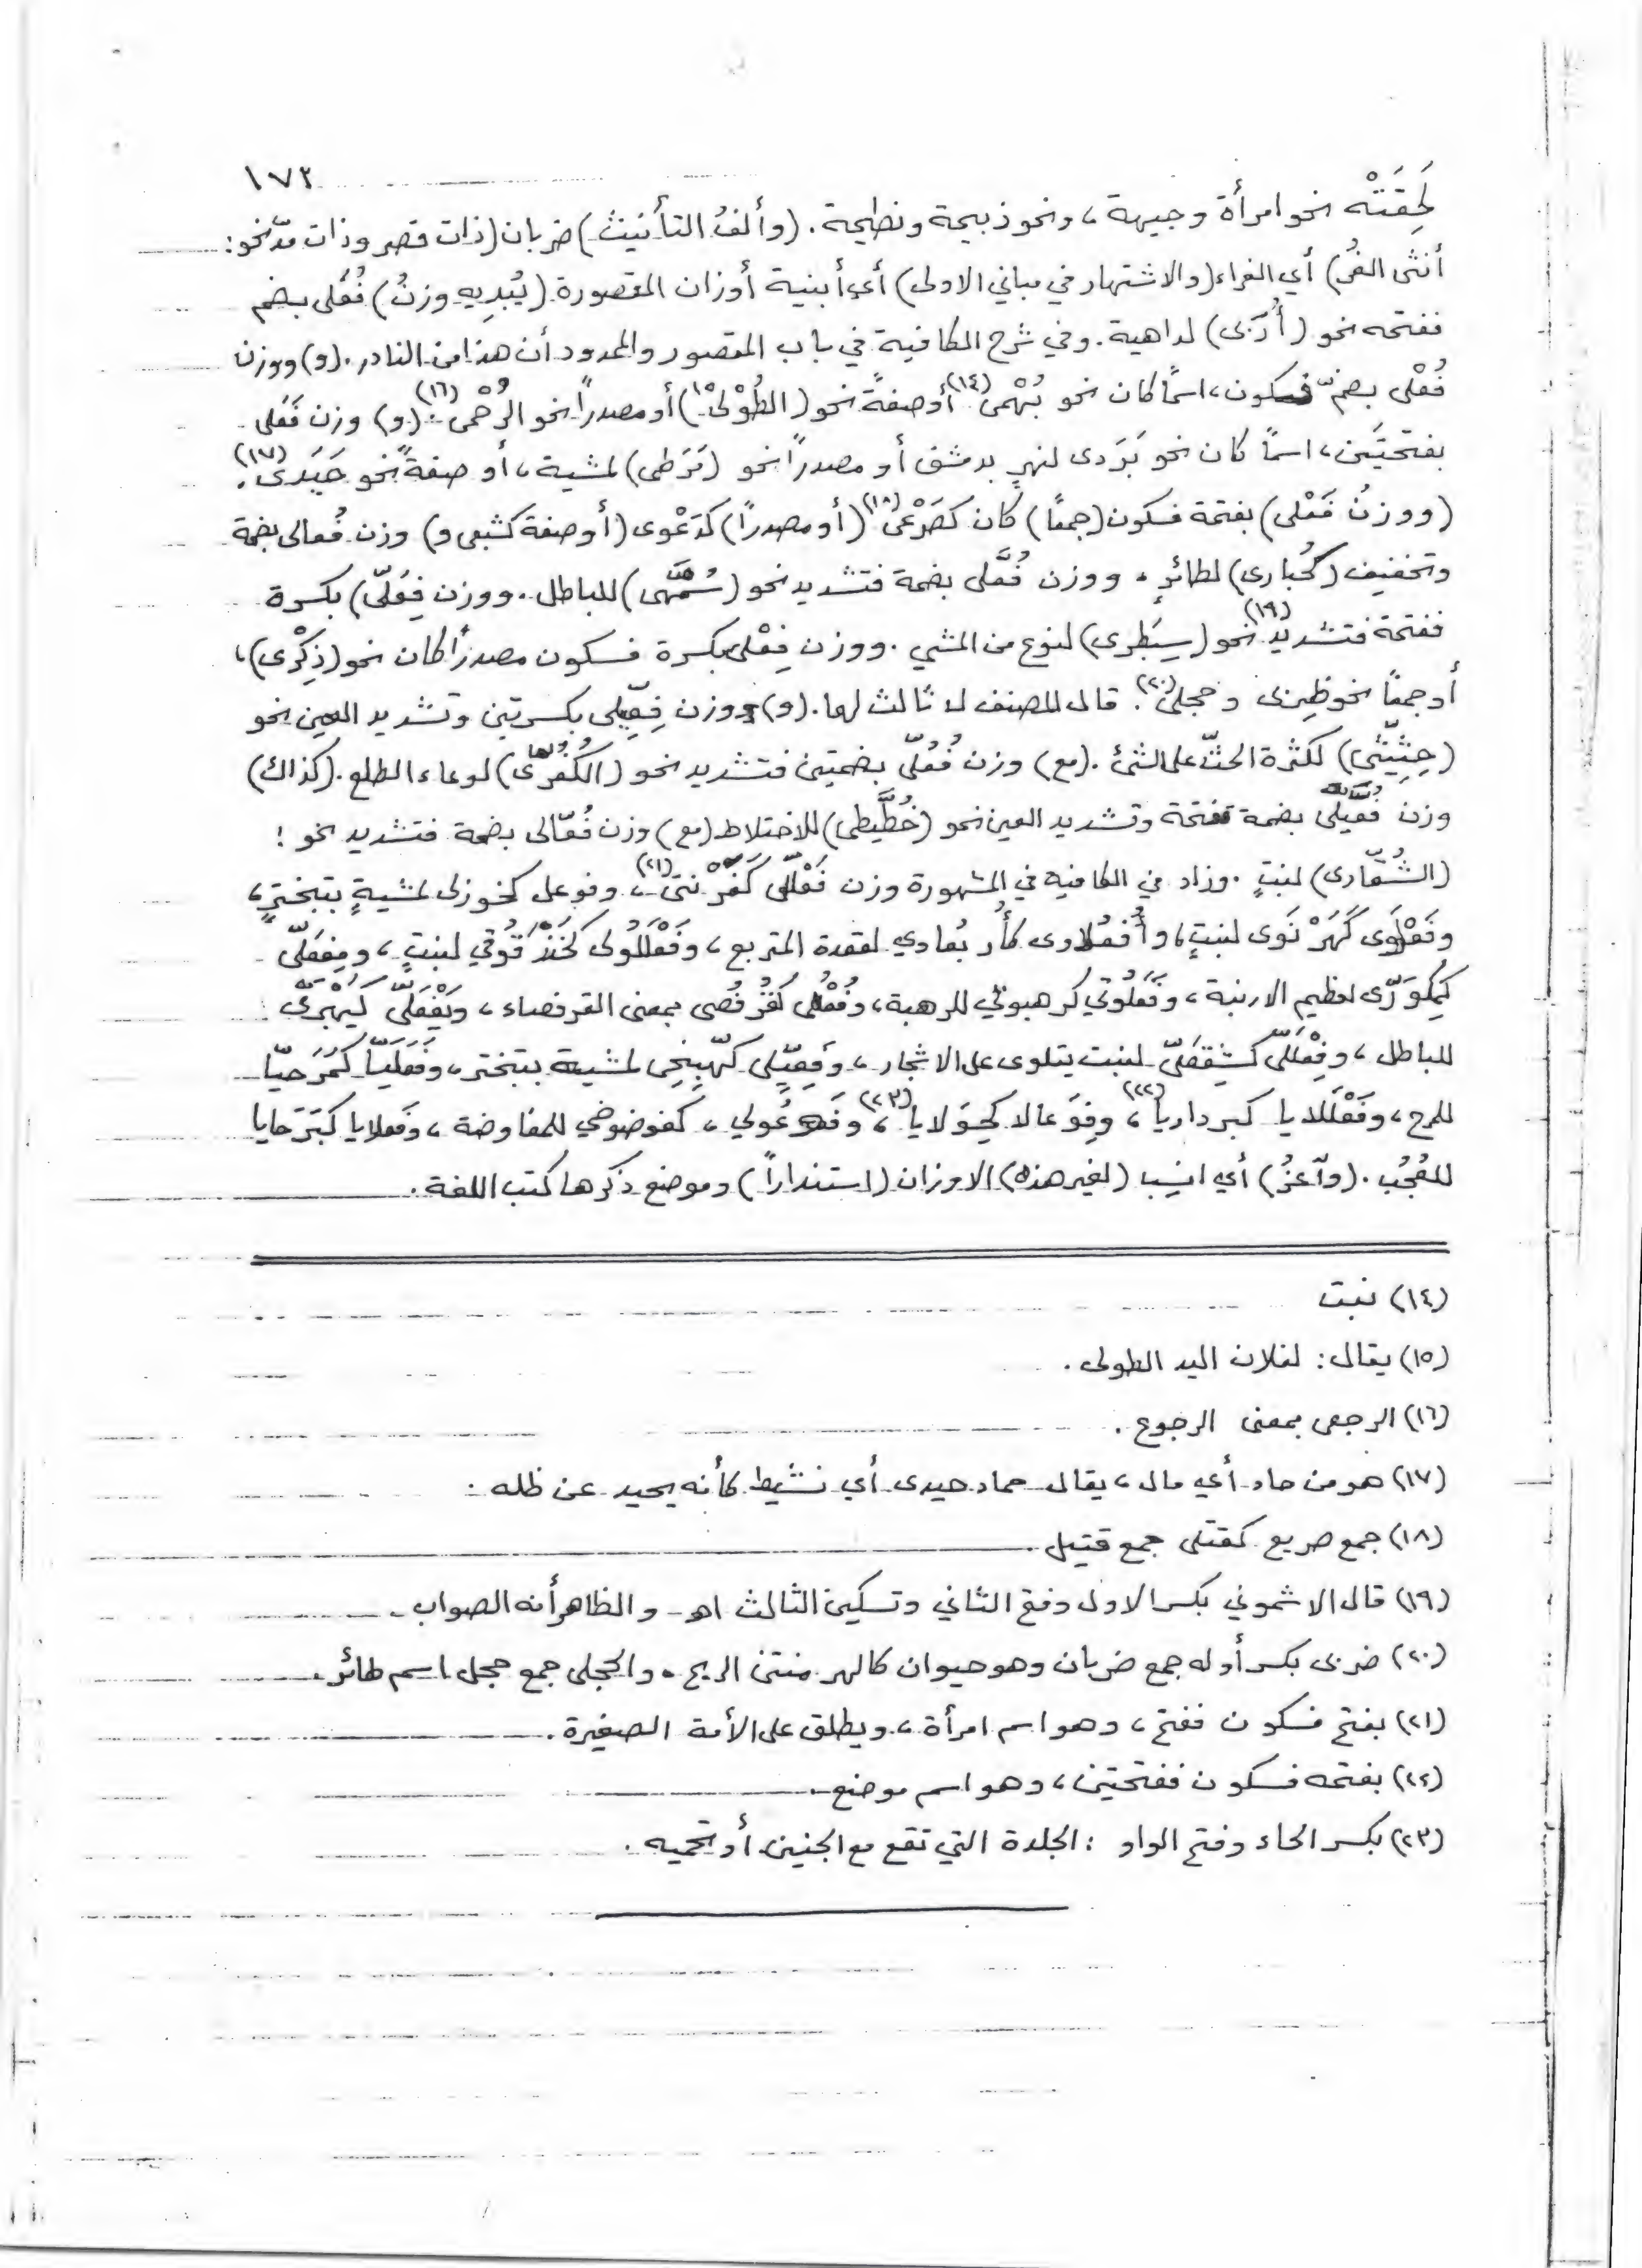 ١٧٢
لَحِقَتْه نحو امرأة وجيهة، ونحو ذبيحة ونطيحة. (وألفُ التأنيث) ضربان (ذات قصر وذات مدّ نحو:
أنثى الغُر) أي الغراء (والاشتهار في مباني الاولى) أي أبنية أوزان المقصورة (يُبْدِيه وزنُ) فُعَلى بضم
ففتحه نحو (أُرَبى) لداهية. وفي شرح الكافية في باب المقصور والممدود أن هذا من النادر. (و) ووزن
فُعْلى بضمّ فسكون، اسمًا كان نحو بُهْمى (١٤) أو صفةً نحو (الطُوْلى ١٥) أو مصدراً نحو الرُجْعى (١٦). (و) وزن فَعَلى
بفتحتَين، اسمًا كان نحو بَرَدى لنهرٍ بدمشق أو مصدراً نحو (مَرَطى) لمشية، أو صفةً نحو حَيَدى (١٧).
(ووزنُ فَعْلى) بفتحة فسكون (جمعًا) كان كصَرْعى (١٨) (أو مصدرًا) كدَعْوى (أو صفة كشبعى و) وزن فُعالى بضمة
وتخفيف (كحُبارى) لطائرٍ. ووزن فُعَّلى بضمة فتشديد نحو (سُمَّهى) للباطل. ووزن فِعَلّى) بكسرة
ففتحة فتشديد (١٩) نحو (سِبَطرى) لنوع من المشي. ووزن فِعْلى بكسرة فسكون مصدرًا كان نحو (ذِكْرى)،
أو جمعًا نحو ظِربى وحجلى (٢٠). قال المصنف لا ثالث لهما. (و) ووزن فِعِّيلى بكسرتين وتشديد العين نحو
(حِثِّيثَى) لكثرة الحثّ على الشئ. (مع) وزن فُعُلّى بضمتين فتشديد نحو (الكُفُرّى) لوعاء الطلع. (كذاك)
وزن فُعَّيلى بضمة ففتحة وتشديد العين نحو (خُطَّيطى) للاختلاط (مع) وزن فُعّالى بضمة فتشديد نحو:
(الشُقّارى) لنبتٍ. وزاد في الكافيه في المشهورة وزن فَعْلَلى كَفَرْتنى (٢١)، وفوعلى كخوزلى لمشيةٍ بتبخترٍ،
وفَعْلَوى كَهَرْنَوى لنبتٍ، وأُفُعُلاوى كأُربُعاوي لقعدة المتربع، وفَعْلَلُولى كحَنْدَقُوقي لنبتٍ، ومِفعَلّى
كمِكوَرّى لعظيم الارنبة، وفَعَلُوتي كرهبوتي للرهبة، وفُعْلُلى كقُرْفُصى بمعنى القرفصاء، ويَفْعَلّى كيَهْيَرّى
للباطل، وفِعْلَلّى كشِفْصَلّى لنبت يتلوى على الاشجار، وفَعَيّلى كهَبَيّخى لمشية بتبختر، وفَعَلَيّا كمَرَحَيّا
للمرح، وفَعْلَلايا كبرداريا (٢٢)، وفِوَعالا كحِوَلايا (٢٣)، وفَوعُولي، كفوضوضي للمفاوضة، وفَعلايا كبَرَحايا
للعُجُب. (وآعزُ) أي انسِب (لغير هذه) الاوزان (استنداراً) وموضع ذكرها كتب اللغة.
(١٤) نبت
(١٥) يقال: لفلان اليد الطولى.
(١٦) الرجعى بمعنى الرجوع.
(١٧) هو من حاد أي مال، يقال حماد حيدى أي نشيط كأنه يحيد عن ظله.
(١٨) جمع صريع كقتلى جمع قتيل.
(١٩) قال الاشموني بكسر الاول وفتح الثاني وتسكين الثالث اهـ - والظاهر أنه الصواب.
(٢٠) ضربى بكسر أوله جمع ضربان وهو حيوان كالهر منتن الريح. والحجلى جمع حجل اسم طائر.
(٢١) بفتح فسكون ففتح، وهو اسم امرأة، ويطلق على الأمة الصغيرة.
(٢٢) بفتحه فسكون ففتحتين، وهو اسم موضع.
(٢٣) بكسر الحاء وفتح الواو : الجلدة التي تقع مع الجنين أو تحميه.